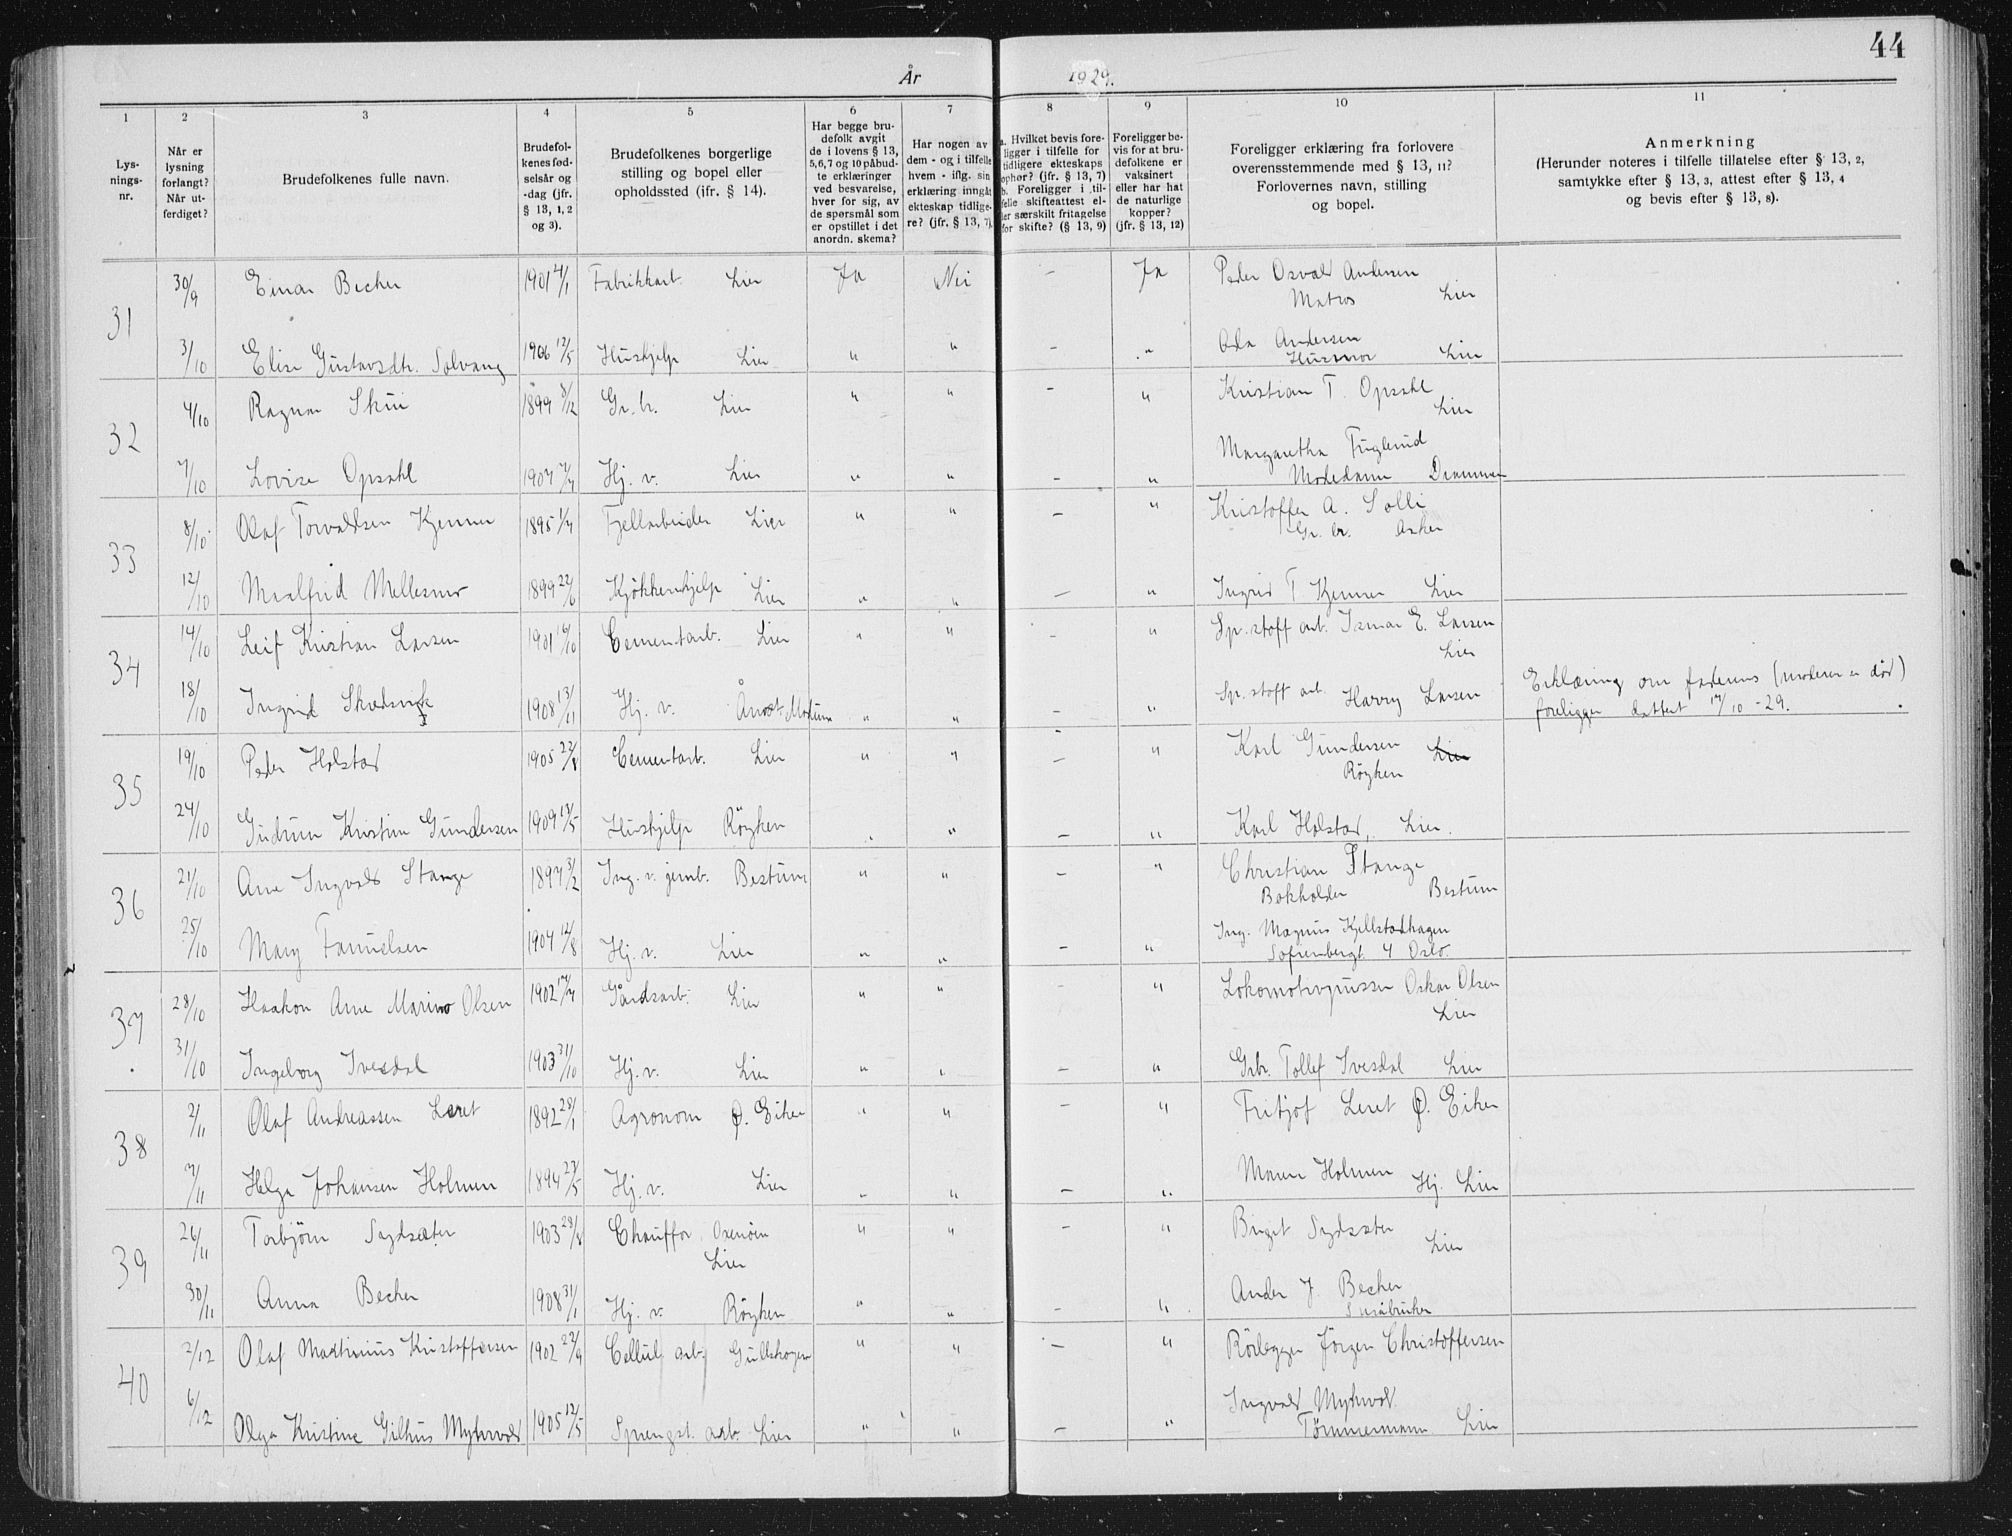 44
År 1929.
1 2 3 4 5 6 7 8 9 10 11
Lys-
nings-
nr.
Når er
lysning
forlangt?
Når ut-
ferdiget?
Brudefolkenes fulle navn.
Brudefol-
kenes fød-
selsår og
-dag (jfr.
§ 13, 1, 2
og 3).
Brudefolkenes borgerlige
stilling og bopel eller
opholdssted (jfr. § 14).
Har begge bru-
defolk avgit
de i lovens § 13,
5,6,7 og 10 påbud-
te erklæringer
ved besvarelse,
hver for sig, av
de spørsmål som
er opstillet i det
anordn. skema?
Har nogen av
dem - og i tilfelle
hvem - iflg. sin
erklæring inngåt
ekteskap tidlige-
re? (jfr. § 13, 7)
a. Hvilket bevis fore-
ligger i tilfelle for
tidligere ekteskaps
ophør? (jfr. § 13, 7)
b. Foreligger i til-
felle skifteattest el-
ler særskilt fritagelse
for skifte? (§ 13, 9)
Foreligger be-
vis for at bru-
defolkene er
vaksinert
eller har hat
de naturlige
kopper?
(jfr. § 13, 12)
Foreligger erklæring fra forlovere
overensstemmende med § 13, 11?
Forlovernes navn, stilling
og bopel.
Anmerkning
(Herunder noteres i tilfelle tillatelse efter § 13, 2,
samtykke efter § 13, 3, attest efter § 13, 4
og bevis efter § 13, 8).
31 30/9 Einar Becher 1901 4/1 Fabrikkarb. Lier Ja Nei – Ja Peder Osvald Andersen
Matros Lier
3/10 Elise Gustavsdtr. Solvang 1906 12/5 Hushjelp Lier " " – " Oda Andersen
Husmor Lier
32 4/10 Ragnar Skui 1899 8/12 Gr. br. Lier " " – " Kristian T. Opsahl
Lier
7/10 Lovise Opsahl 1907 7/7 Hj. v. Lier " " – " Margaretha Fuglerud
Motedame Drammen
33 8/10 Olaf Torvaldsen Kjenner 1895 1/7 Fjellarbeider Lier " " – " Kristoffer A. Solli
Gr. br. Asker
12/10 Maalfrid Mellesmo 1899 22/6 Kjökkenhjelp Lier " " – " Ingrid T. Kjenner Lier
34 14/10 Leif Kristian Larsen 1901 16/10 Cementarb. Lier " " – " Sp. stoff arb. Ismar E. Larsen
Lier
18/10 Ingrid Skredsvik 1908 13/11 Hj. v. Åmot. Modum " " – " Sp. stoff arb. Harry Larsen Erklæring om faderens (moderen er død)
foreligger dattert 17/10 - 29.
35 19/10 Peder Holstad 1905 22/8 Cementarb. Lier " " – " Karl Gundersen Lier
Röyken
24/10 Gudrun Kristine Gundersen 1909 13/5 Hushjelp Röyken " " – " Karl Holstad, Lier.
36 21/10 Arne Ingvald Stange 1897 3/2 Ing. v. jernb. Bestum " " – " Christian Stange
Bokholder Bestum
25/10 Mary Samuelsen 1904 12/8 Hj. v. Lier " " – " Ing. Magnus Kjellstadhagen
Sofienbergt 4 Oslo.
37 28/10 Haakon Arne Marino Olsen 1902 17/7 Gårdsarb. Lier " " – " Lokomotivpusser Oskar Olsen
Lier
31/10 Ingeborg Ivesdal 1903 31/10 Hj. v. Lier " " – " Grbr. Tollef Ivesdal Lier
38 2/11 Olaf Andreassen Leret 1892 28/1 Agronom Ø. Eiker " " – " Fritjof Leret Ø. Eiker
7/11 Helga Johansen Holmen 1894 27/5 Hj. v. Lier " " – " Maren Holmen Hj. Lier
39 26/11 Torbjörn Sydsæter 1903 28/8 Chauffør Oxenöen
Lier " " – " Birgit Sydsæter
Lier
30/11 Anna Becher 1908 31/1 Hj. v. Röyken " " – " Anders J. Becher
Småbruker
40 2/12 Olaf Martinius Kristoffersen 1902 22/9 Cellul. arb. Gullskogen " " – " Rörlegger Jörgen Christoffersen
6/12 Olga Kristine Gilhus Myhrvold 1905 12/5 Sprengst. arb. Lier " " – " Ingvald Myhrvold
Tömmermann Lier